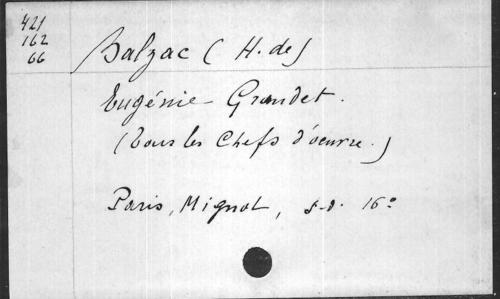 421
162
66
Balzac (H. de)
Eugénie Grandet.
(Tous les Chefs d'oeuvre.)
Paris, Mignot, s.d. 16º